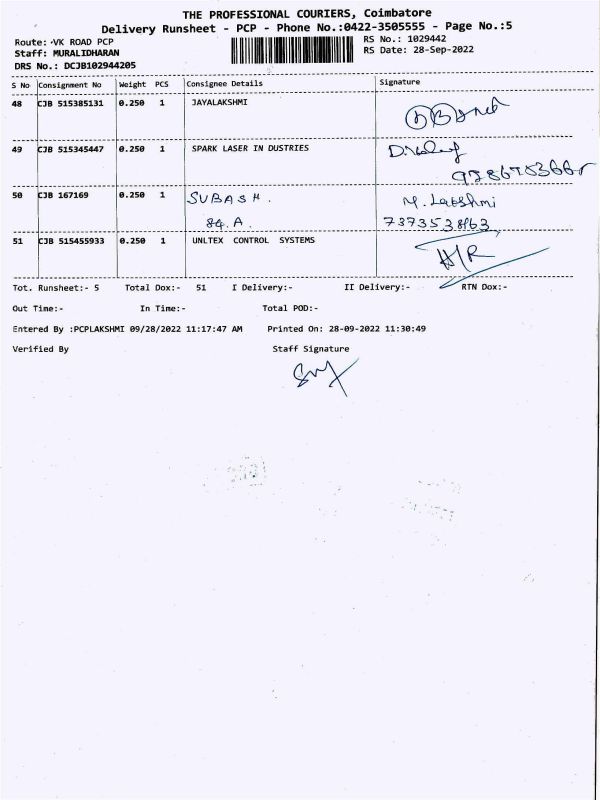 THE PROFESSIONAL COURIERS, Coimbatore
Delivery Runsheet - PCP - Phone No.:0422-3505555 - Page No.:5
Route: -VK ROAD PCP
RS No.: 1029442
Staff: MURALIDHARAN
RS Date: 28-Sep-2022
DRS No.: DCJB102944205
S No Consignment No Weight PCS Consignee Details Signature
48 CJB 515385131 0.250 1 JAYALAKSHMI
49 CJB 515345447 0.250 1 SPARK LASER IN DUSTRIES
50 CJB 167169 0.250 1 SUBASH. M. Lakshmi
84.A. 7373538463
51 CJB 515455933 0.250 1 UNLTEX CONTROL SYSTEMS
Tot. Runsheet:- 5 Total Dox:- 51 I Delivery:- II Delivery:- RTN Dox:-
Out Time:- In Time:- Total POD:-
Entered By :PCPLAKSHMI 09/28/2022 11:17:47 AM Printed On: 28-09-2022 11:30:49
Verified By Staff Signature